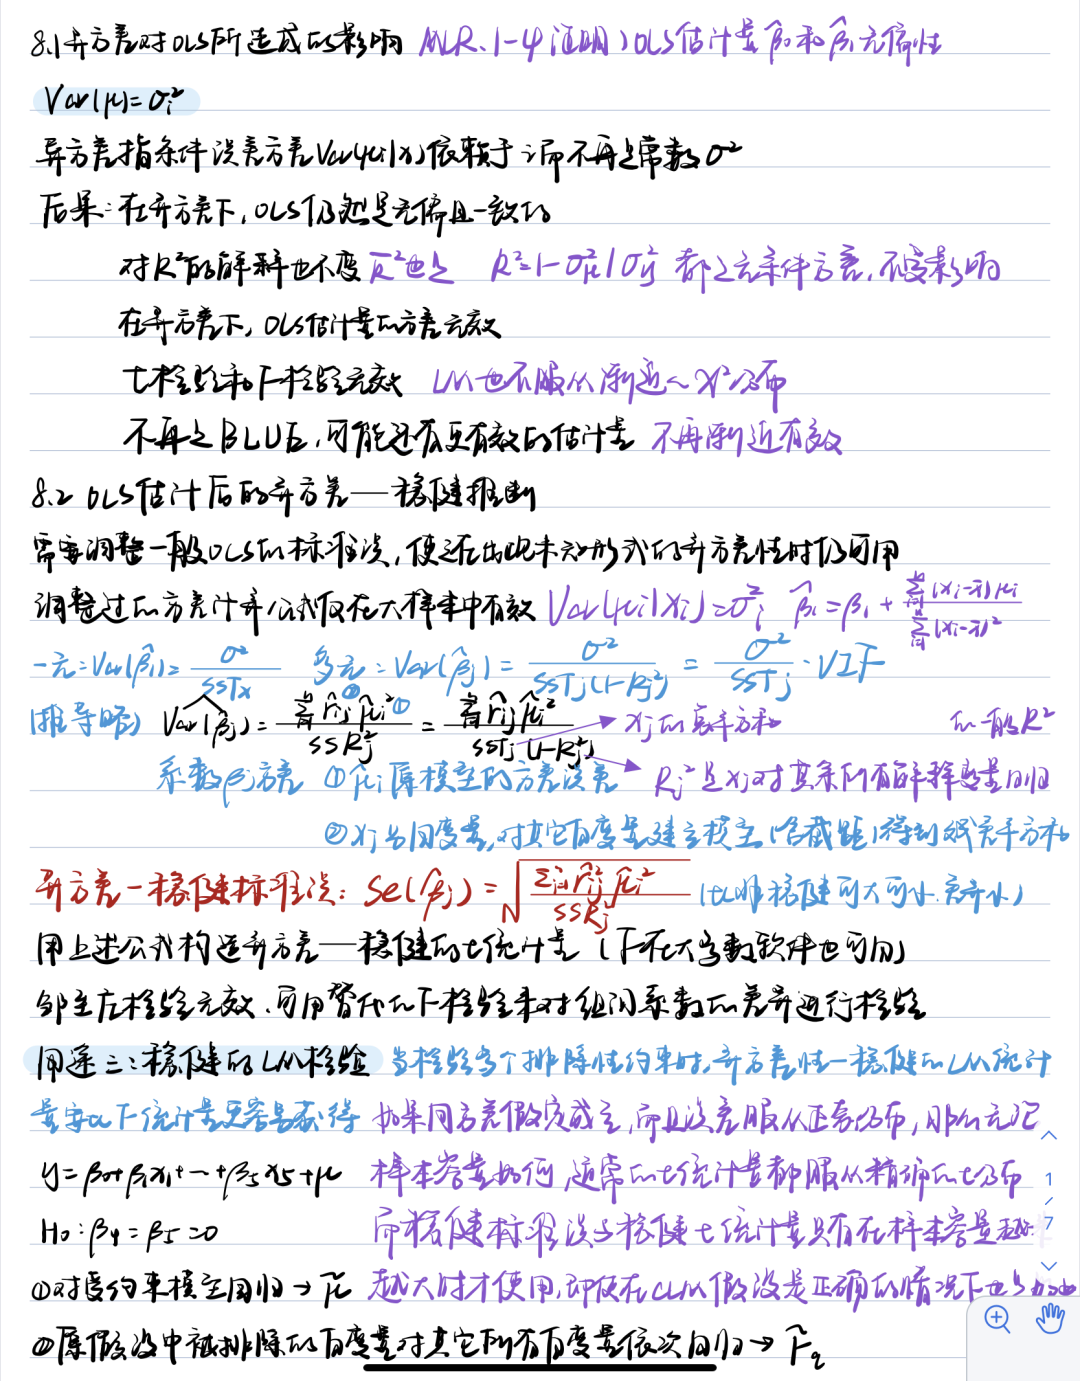 8.1 异方差对OLS所造成的影响 MLR.1-4证明了OLS估计量β̂₀和β̂₁无偏性
Var(μ)=σᵢ²
异方差指条件误差方差Var(μᵢ|xᵢ)依赖于i而不再是常数σ²
后果：在异方差下，OLS仍然是无偏且一致的
对R²的解释也不变 R̄²也是 R²=1-σμ²/σy² 都是无条件方差，不受影响
在异方差下，OLS估计量的方差无效
t检验和F检验无效 LM也不服从渐近~χ²分布
不再是BLUE，可能还有更有效的估计量 不再渐近有效
8.2 OLS估计后的异方差—稳健推断
需要调整一般OLS的标准误，使之在出现未知形式的异方差性时仍可用
调整过的方差计算公式仅在大样本中有效 Var(μᵢ|xᵢ)=σᵢ² β̂₁=β₁+ Σⁿᵢ₌₁(xᵢ-x̄)μᵢ / Σⁿᵢ₌₁(xᵢ-x̄)²
一元：Var(β̂₁)= σ²/SSTx 多元：Var(β̂ⱼ)= σ²/SSTⱼ(1-Rⱼ²) = σ²/SSTⱼ · VIF
(推导略) Var(β̂ⱼ)= Σ r̂ᵢⱼ²② μ̂ᵢ²① / SSRⱼ² = Σ r̂ᵢⱼ² μ̂ᵢ² / SSTⱼ(1-Rⱼ²) → xⱼ的离平方和 的一般R²
系数βⱼ方差 ①μ̂ᵢ原模型的方差误差 Rⱼ²是xⱼ对其余所有解释变量回归
②xⱼ当因变量，对其它自变量建立模型(含截距)得到残差平方和
异方差—稳健标准误：se(β̂ⱼ)=√(Σ r̂ᵢⱼ² μ̂ᵢ² / SSRⱼ²) (比非稳健可大可小，差异小)
用上述公式构造异方差—稳健的t统计量 (F在大多数软件也可用)
邹至庄检验无效，可用替代的F检验来对组间系数的差异进行检验
用途三：稳健的LM检验 当检验多个排除性约束时，异方差性—稳健的LM统计
量要比F统计量更容易获得 如果同方差假定成立，而且误差服从正态分布，那么无论
y=β₀+β₁x₁+…+β₅x₅+μ 样本容量如何，通常的t统计量都服从精确的t分布
H₀：β₄=β₅=0 而稳健标准误与稳健t统计量只有在样本容量越来
①对受约束模型回归→μ̃ 越大时才使用，即使在CLM假设是正确的情况下也
②原假设中被排除的自变量对其它所有自变量依次回归→r̂q
1
7